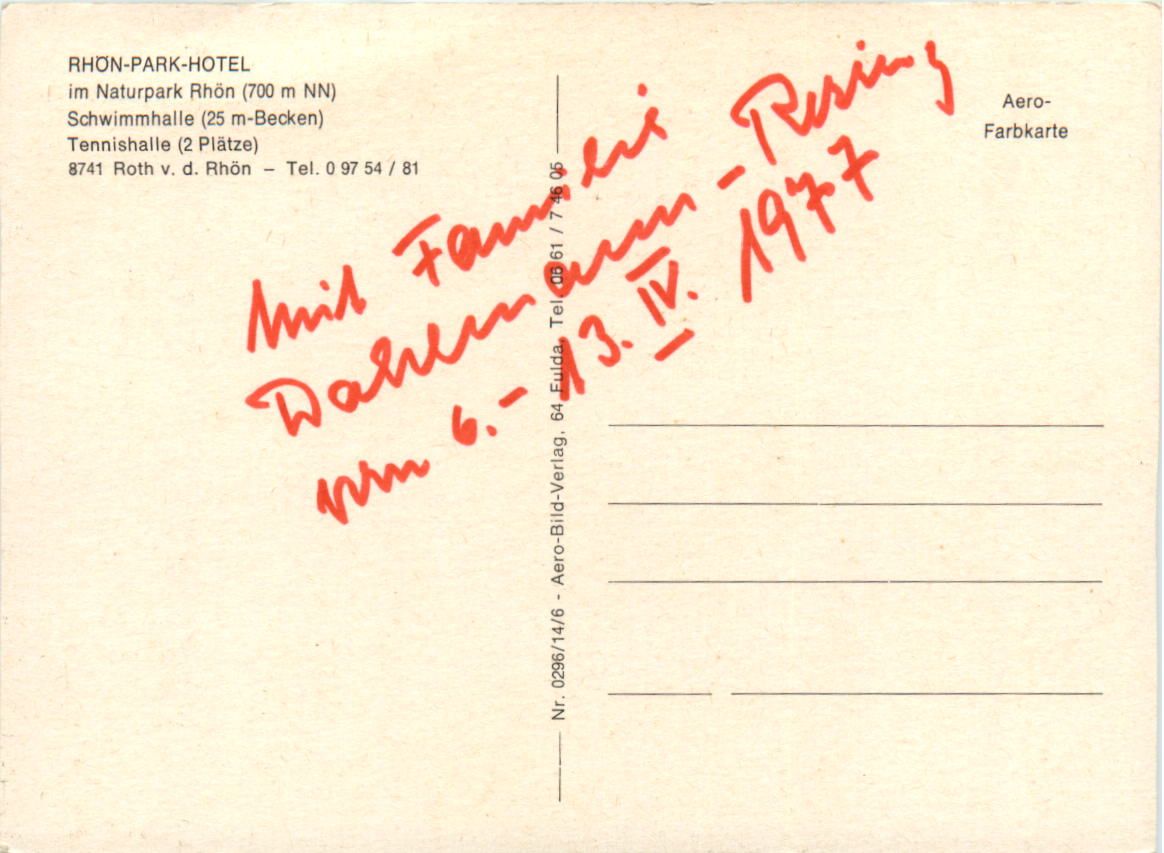 RHÖN-PARK-HOTEL
im Naturpark Rhön (700 m NN)
Schwimmhalle (25 m-Becken)
Tennishalle (2 Plätze)
8741 Roth v. d. Rhön – Tel. 0 97 54 / 81
Aero-
Farbkarte
Mit Familie
vom 6.-13. IV. 1977
Nr. 0296/14/6 - Aero-Bild-Verlag, 64 Fulda, Tel. 06 61 / 7 46 05